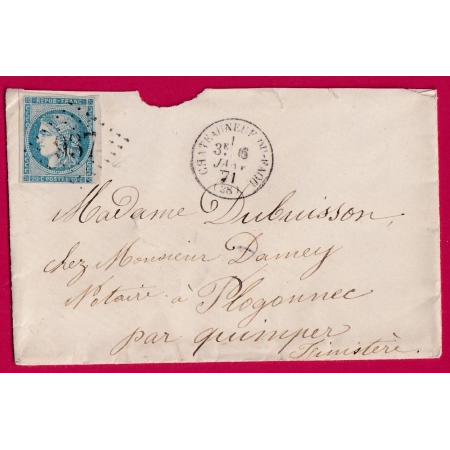 REPUB·FRANC
20·C POSTES 20·C
CHATEAUNEUF-DU-FAOU
3E 6
JANV
71
(28)
Madame Dubuisson,
chez Monsieur Damey
Notaire à Plogonnec
par quimper
Finistère.